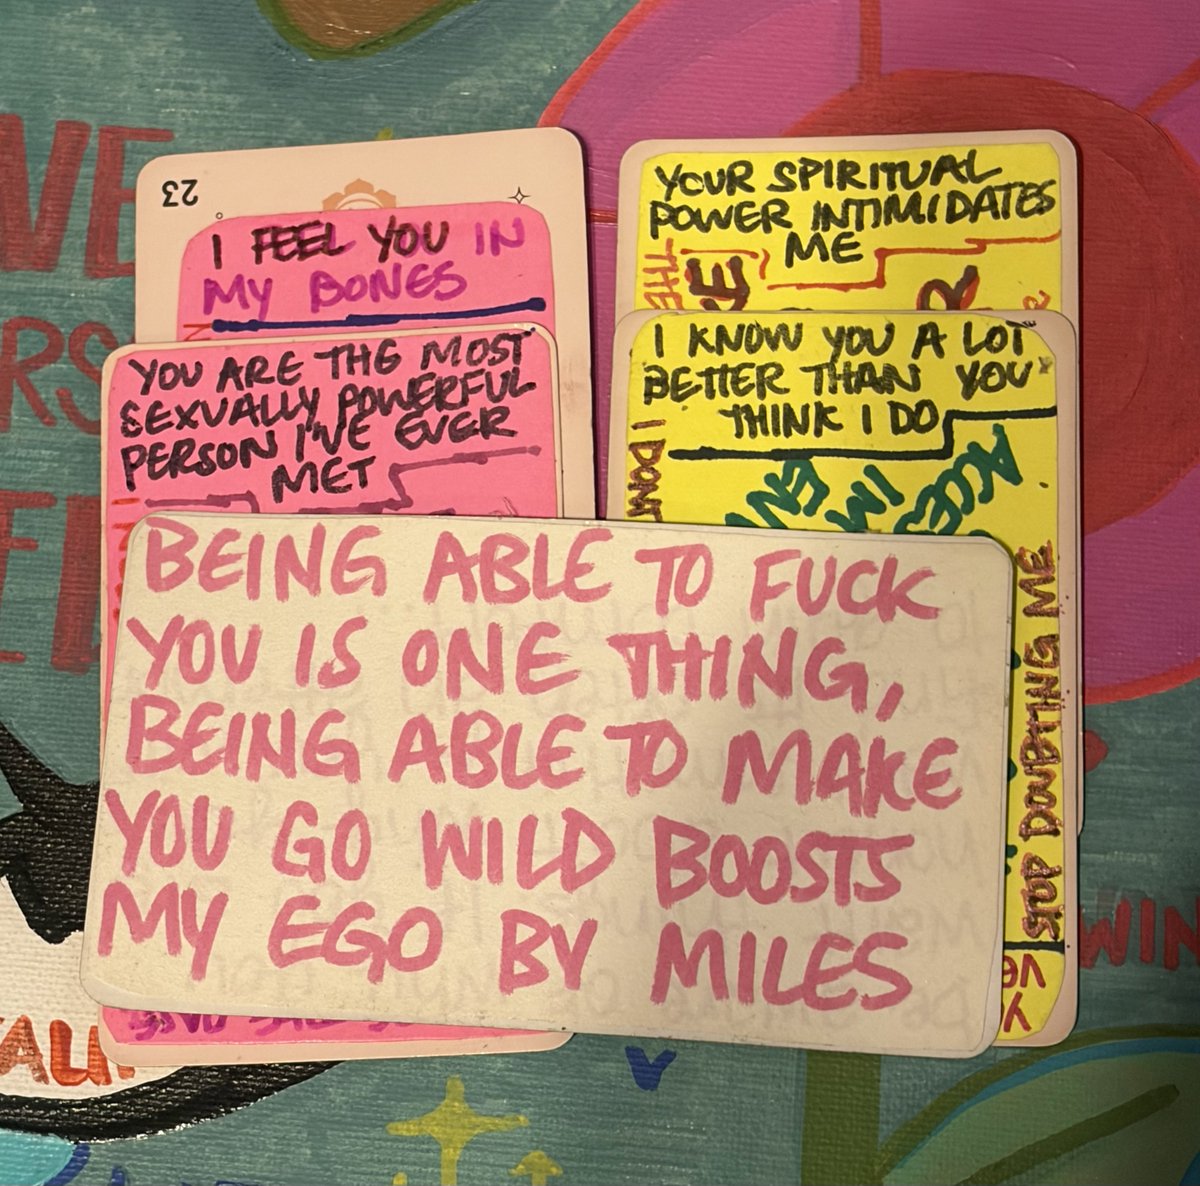 23
I FEEL YOU IN
MY BONES
YOUR SPIRITUAL
POWER INTIMIDATES
ME
THE
YOU ARE THE MOST
SEXUALLY POWERFUL
PERSON I'VE EVER
MET
I KNOW YOU A LOT
BETTER THAN YOU
THINK I DO
I DON'T
STOP DOUBTING ME
BEING ABLE TO FUCK
YOU IS ONE THING,
BEING ABLE TO MAKE
YOU GO WILD BOOSTS
MY EGO BY MILES
WIN